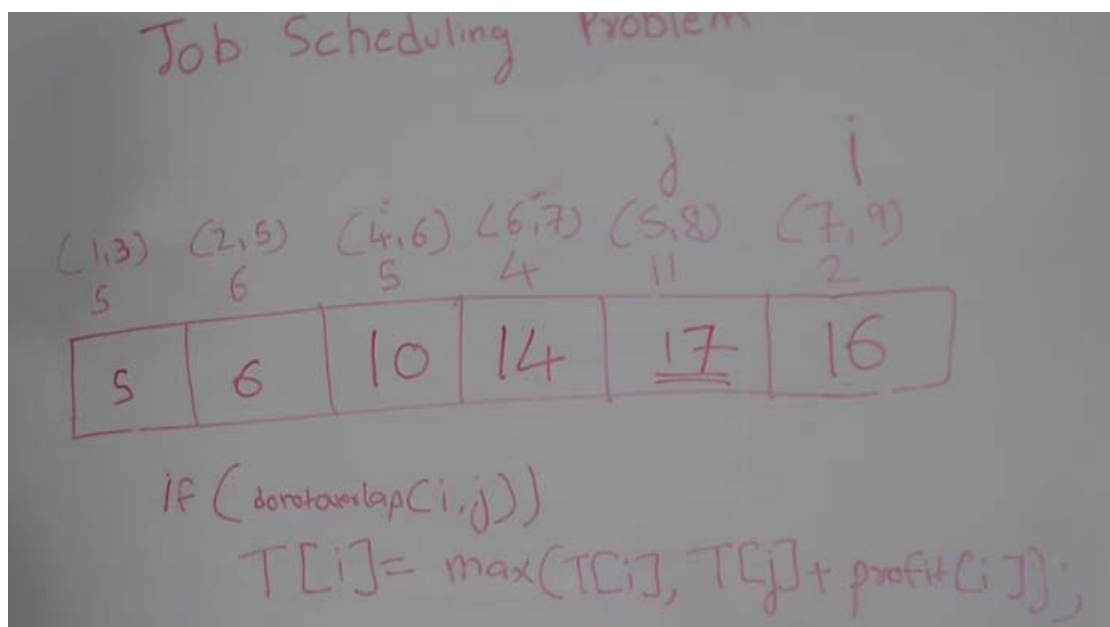 Job Scheduling Problem
j i
(1,3) (2,5) (4,6) (6,7) (5,8) (7,9)
5 6 5 4 11 2
5 6 10 14 17 16
if (donotoverlap(i,j))
T[i]= max(T[i], T[j]+ profit[i]);